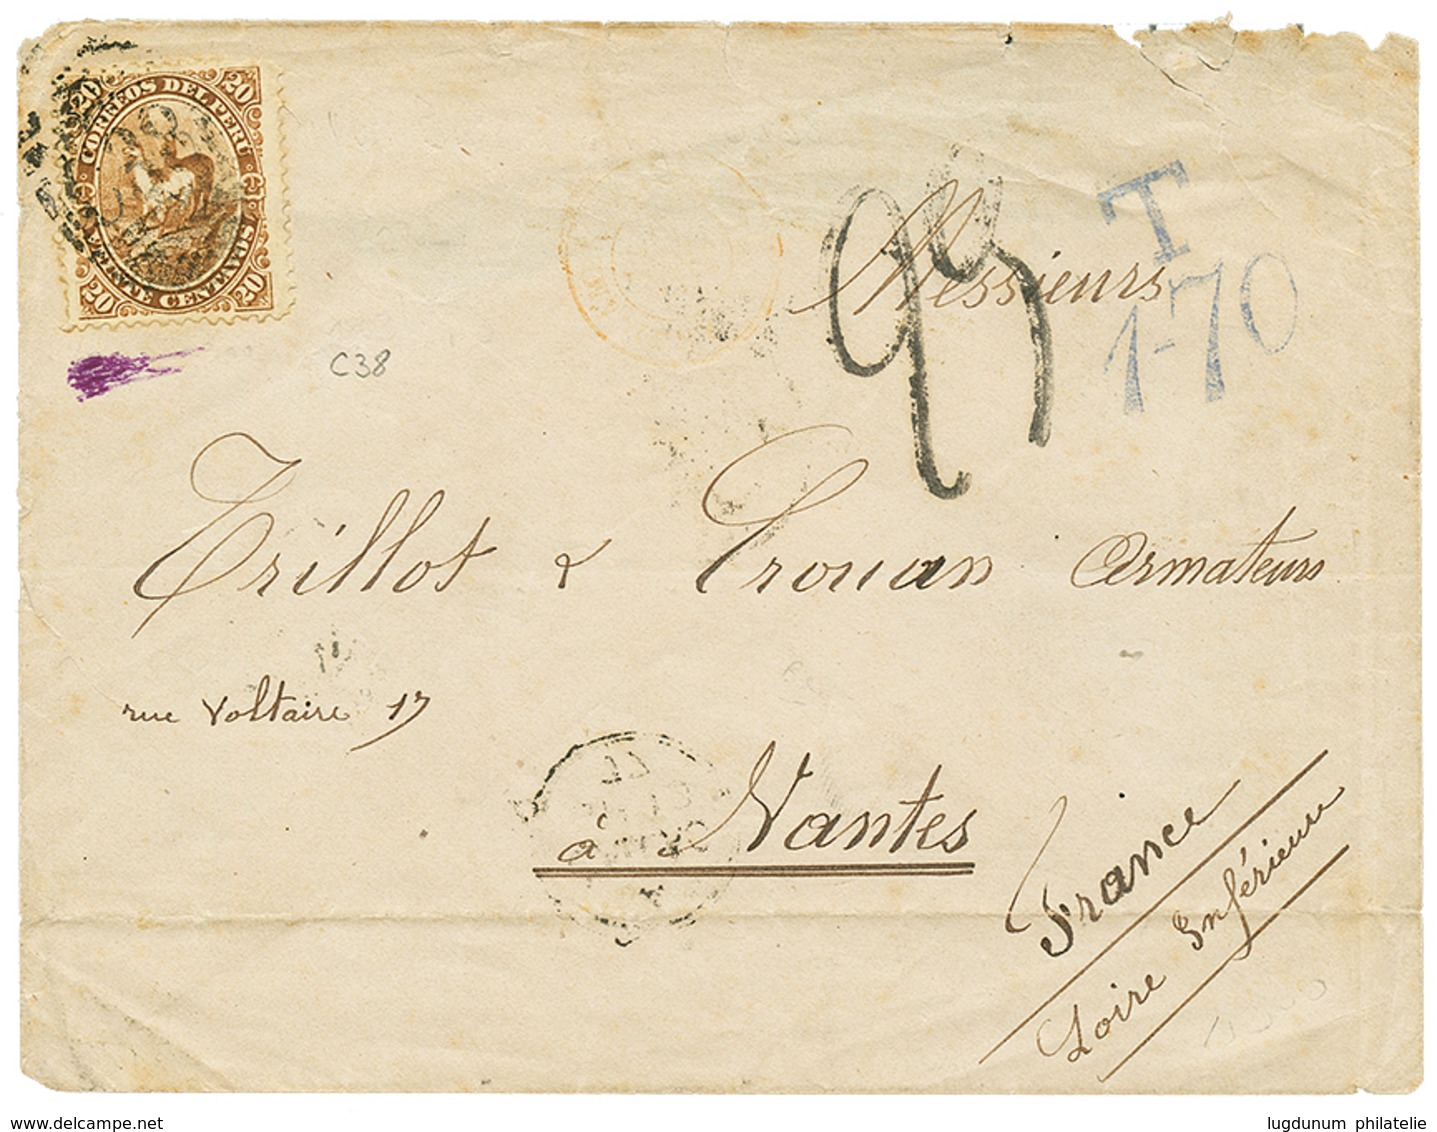 20 CORREOS DEL PERU 20
20 VEINTE CENTAVOS 20
C38
T
1-70
Messieurs
Trillot & Crouan Armateurs
rue Voltaire 17
à Nantes
France
Loire Inférieure
delcampe.net
lugdunum philatelie